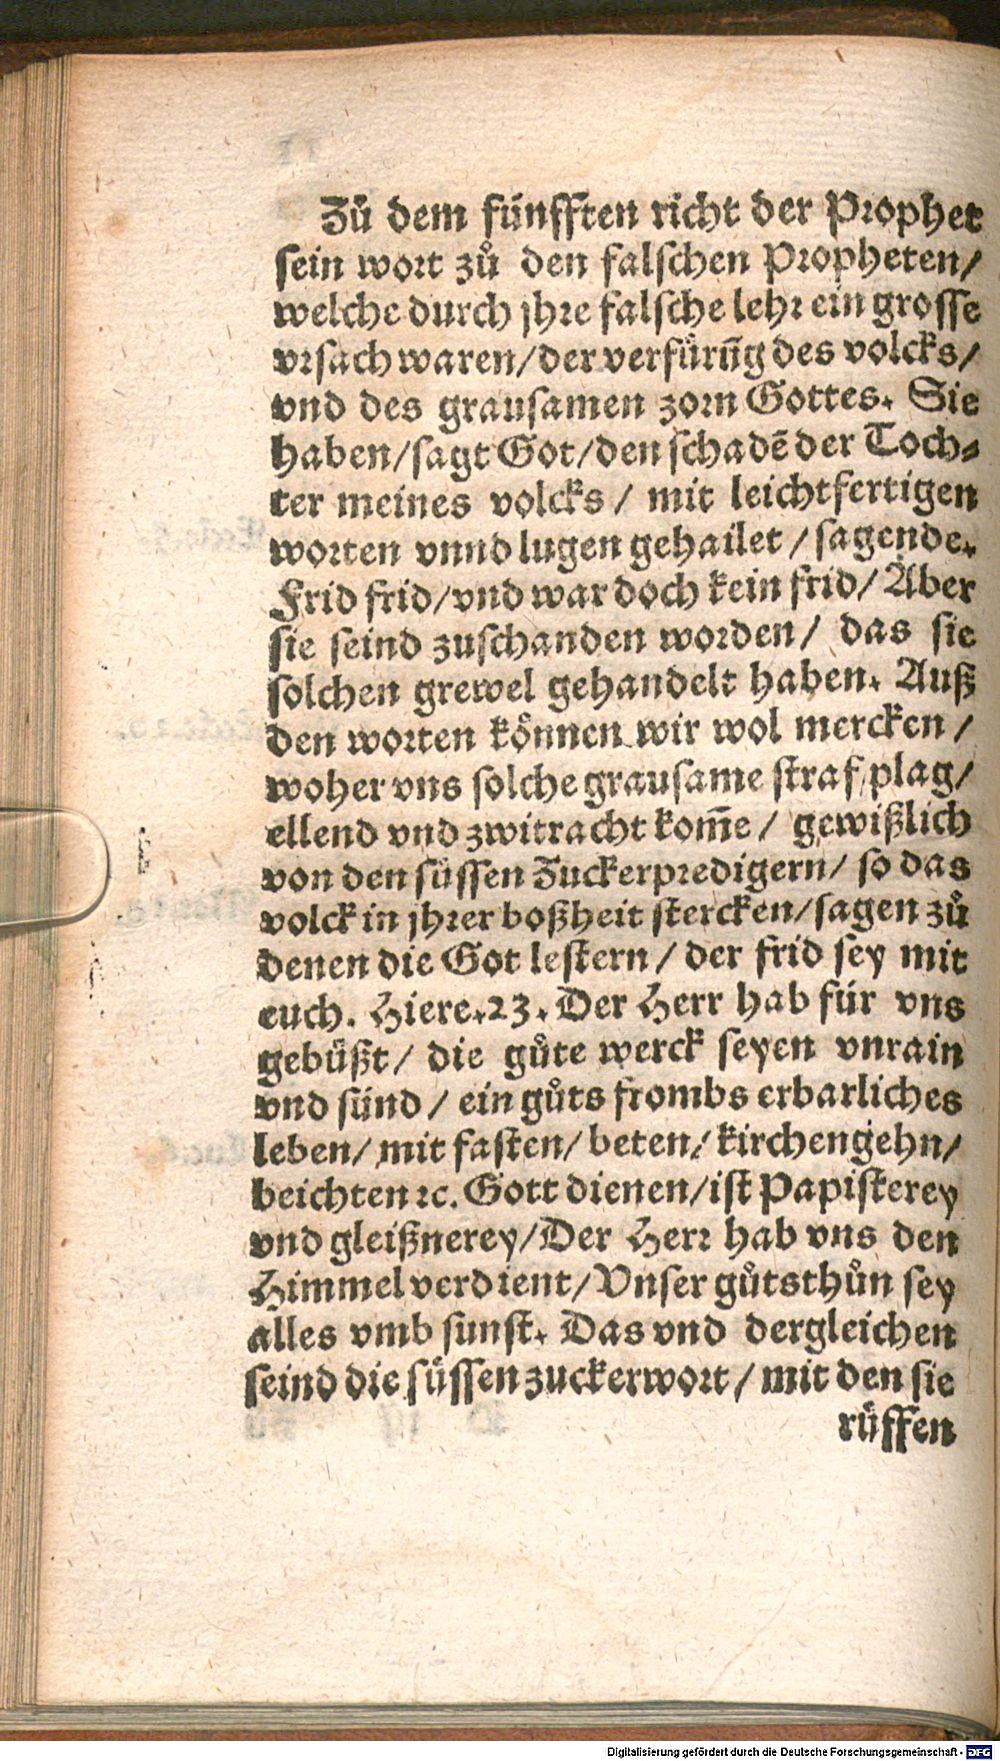 Zů dem fünfften richt der Prophet
sein wort zů den falschen Propheten/
welche durch jhre falsche lehr ein grosse
vrsach waren/der verfürūg des volcks/
vnd des grausamen zorn Gottes. Sie
haben/sagt Got/den schadē der Toch⸗
ter meines volcks/ mit leichtfertigen
worten vnnd lugen gehailet/sagende.
Frid frid/vnd war doch kein frid/Aber
sie seind zuschanden worden/ das sie
solchen grewel gehandelt haben. Auß
den worten können wir wol mercken/
woher vns solche grausame straf/plag/
ellend vnd zwitracht kom̄e/ gewißlich
von den süssen Zuckerpredigern/ so das
volck in jhrer boßheit stercken/sagen zů
denen die Got lestern/ der frid sey mit
euch. Hiere.23. Der Herr hab für vns
gebüßt/ die gůte werck seyen vnrain
vnd sünd/ ein gůts frombs erbarliches
leben/ mit fasten/ beten/ kirchengehn/
beichten ⁊c. Gott dienen/ist Papisterey
vnd gleißnerey/Der Herr hab vns den
Himmel verdient/Vnser gůtsthůn sey
alles vmb sunst. Das vnd dergleichen
seind die süssen zuckerwort/ mit den sie
rüffen
Digitalisierung gefördert durch die Deutsche Forschungsgemeinschaft - DFG